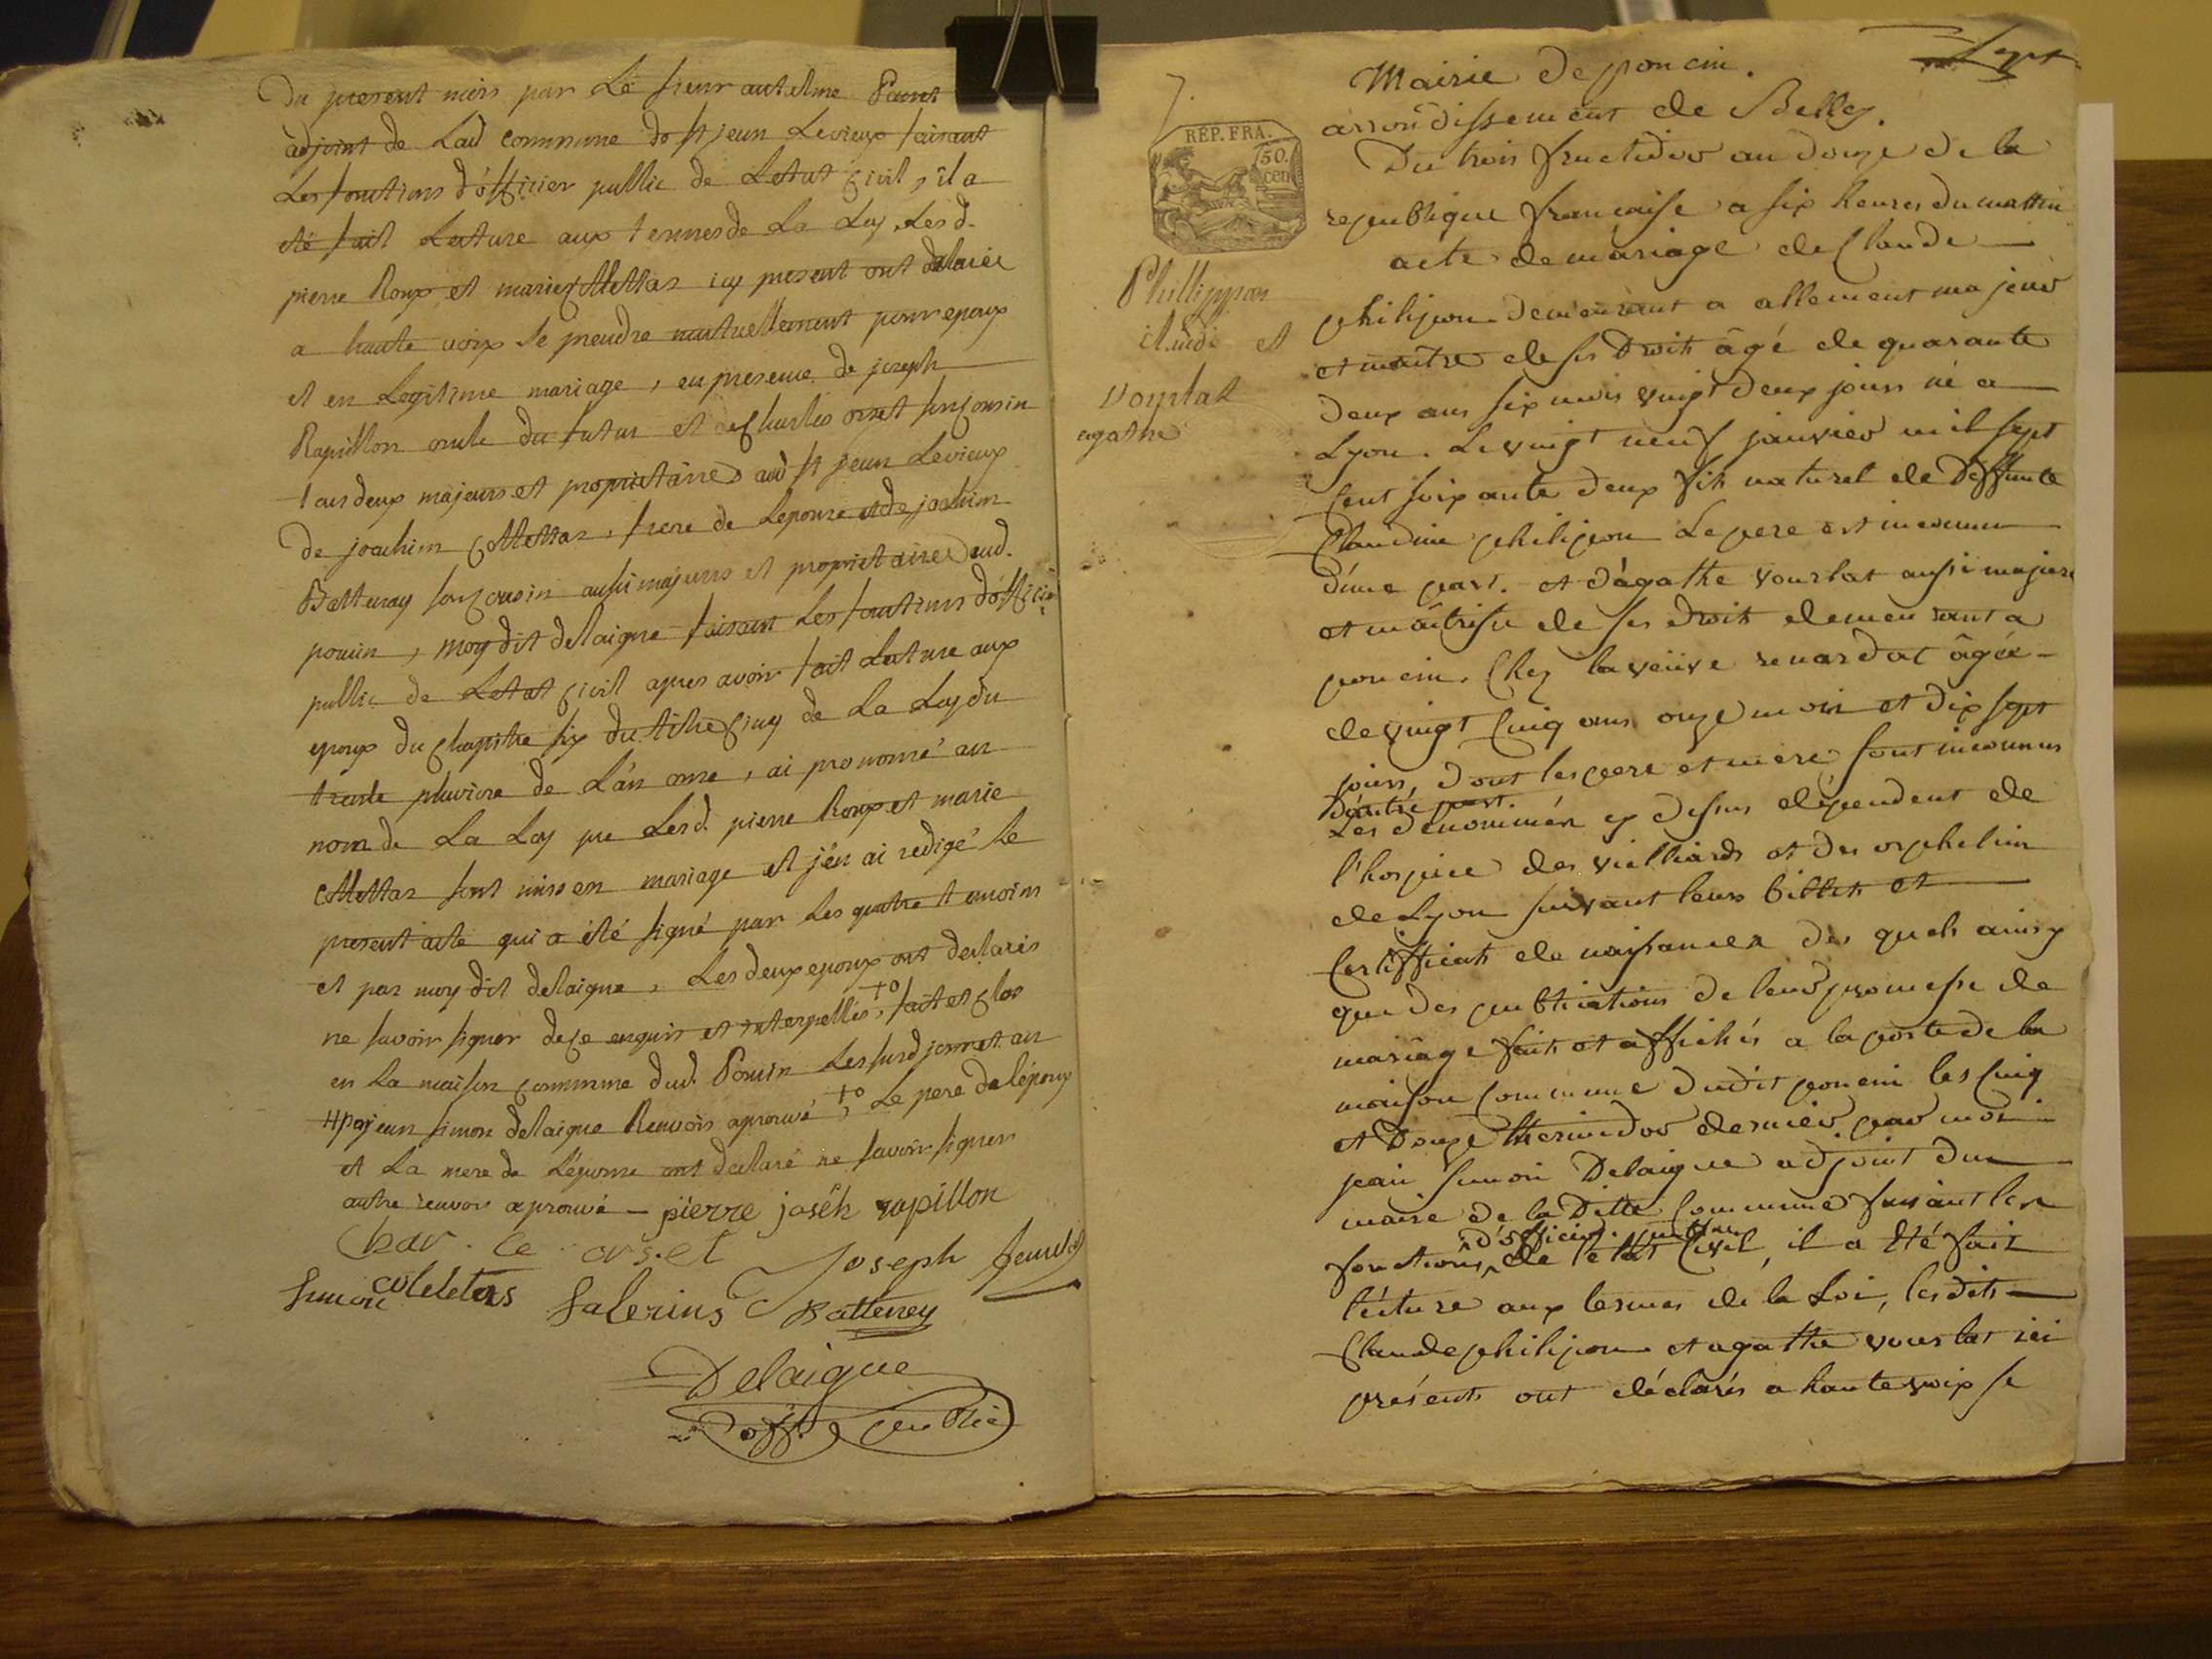 du present mois par Le sieur antelme Painet
adjoint de Lad commune de st jean Levieux faisant
Les fonctions d'officier public de Letat civil, il a
eté fait Lecture aux termes de La Loy, Lesd.
pierre Roux et marie Mettas icy present ont dclaréz
a haute voix se prendre mutuellement pour epoux
et en Legitime mariage, en presence de joseph
Rapillon oncle du futur et de charles orset son cousin
tous deux majeurs et proprietaires aud st jean Levieux
de joachim Mettas, frere de Lepouse et de joachim
Battenay son cousin aussi majeurs et proprietaires aud.
poncin, moy dit delaigue faisant Les fonctions d'officier
public de Letat civil apres avoir fait Lecture aux
epoux du chapitre six du titre cinq de La Loy du
trente pluviose de L'an onze, ai prononcé au
nom de La Loy que Lesd. pierre Roux et marie
Mettas sont unis en mariage et j'en ai redigé le
present acte qui a été signé par Les quatre temoins
et par moy dit delaigue, Les deux epoux ont declarés
ne savoir signer de ce enquis et interpellés, +o fait et clos
en La maison commune dud. Poncin Les susd jour et an
# par jean simon delaigue Renvois aprouvé +o, Le pere de l'epoux
et La mere de L'epouse ont declaré ne savoir signer
autre renvoi aprouvé - pierre joseh rapillon
Char. le orset
Joseph
Simon coleletas Salerins Batteney
Delaigue
off. public
Sept
7.
Mairie de poncin.
arrondissement de Belley.
REP. FRA.
50.
cen
Du trois fructidor an douze de la
republique francaise a six heures du mattin
acte de mariage de Claude
Phillippon
claude et
vourlat
agathe
philipon demeurant a allement majeur
et maître de ses Droits âgé de quarante
deux ans six mois vingt deux jours né a
Lyon. Le vingt neuf janvier mil sept
Cent soixante deux fils naturel de Deffunte
Claudine philipon Le pere est inconnu
d'une part. et d'agathe vourlat aussi majeure
et maîtrise de ses droits demeurant a
poncin. Chez la veuve renardat âgée
de vingt Cinq ans onze mois et dix sept
jours, dont les pere et mere sont inconnus
D'autre part.
Les dénommés cy dessus dépendent de
l'hospice des vielliards et des orphelins
de Lyon suivant leurs billets et
Certifficats de naissances des quels ainsy
que des publications de leur promesse de
mariage faits et affichés a la porte de la
maison Commune dudit poncin les Cinq
et Douze thermidor dernier par moi
jean simon Delaigue adjoint du
maire de la Ditte Commune faisant les
fonctions d'officier public de l'etat Civil, il a été fait
lécture aux termes de la Loi, les dits
Claude philipon et agathe vourlat ici
présents ont déclarés a haute voix se